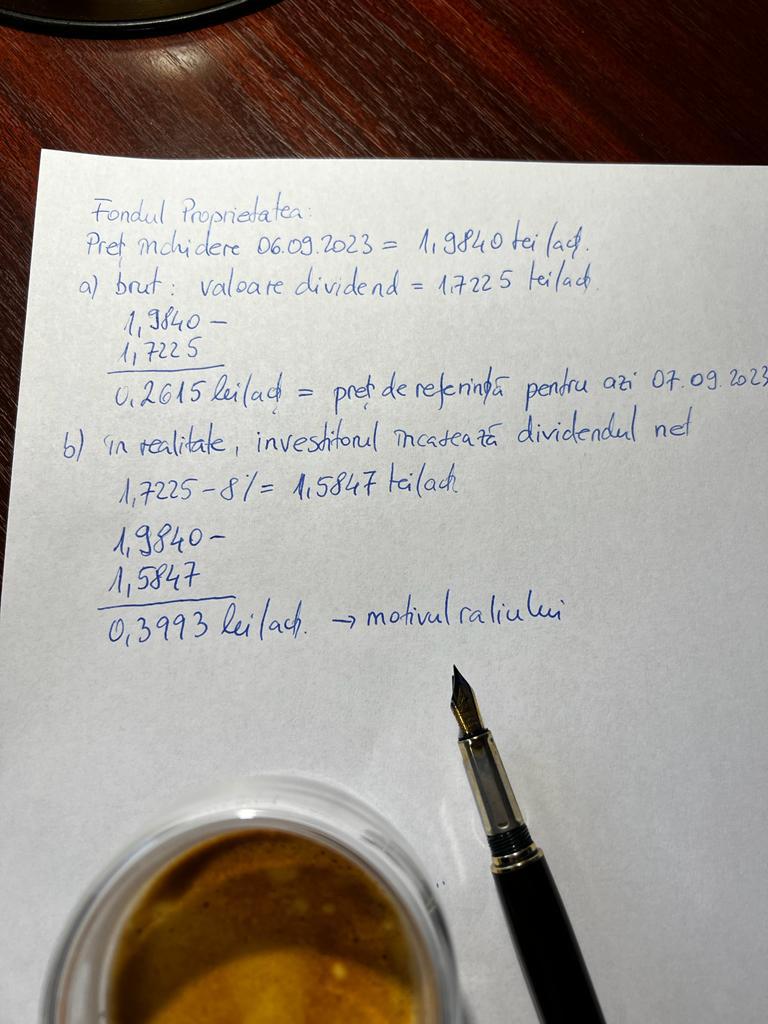 Fondul Proprietatea:
Preț închidere 06.09.2023 = 1,9840 lei/acț.
a) brut: valoare dividend = 1,7225 lei/acț.
1,9840 –
1,7225
0,2615 lei/acț = preț de referință pentru azi 07.09.2023
b) în realitate, investitorul încasează dividendul net
1,7225 – 8% = 1,5847 lei/acț
1,9840 –
1,5847
0,3993 lei/acț. → motivul raliului